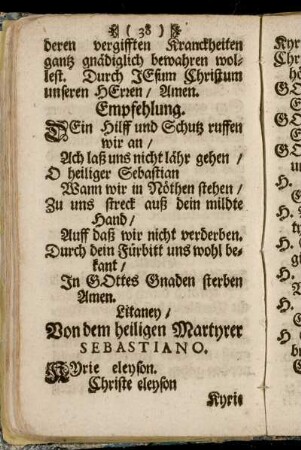 ( 38 )
deren vergifften Kranckheiten
gantz gnädiglich bewahren wol-
lest. Durch JEsum Christum
unseren HErren / Amen.
Empfehlung.
DEin Hilff und Schutz ruffen
wir an /
Ach laß uns nicht lähr gehen /
O heiliger Sebastian
Wann wir in Nöthen stehen /
Zu uns streck auß dein mildte
Hand /
Auff daß wir nicht verderben.
Durch dein Fürbitt uns wohl be-
kant /
In GOttes Gnaden sterben
Amen.
Litaney /
Von dem heiligen Martyrer
SEBASTIANO.
KYrie eleyson.
Christe eleyson
Kyrie